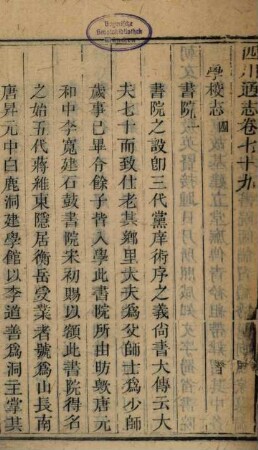 四川通志卷七十九
學校志
書院一
書院之設卽三代黨庠術序之義尙書大傳云大
夫七十而致仕老其鄉里大夫爲父師士爲少師
歲事已畢合餘子皆入學此書院所由昉歟唐元
和中李寬建石鼓書院宋初賜以額此書院得名
之始五代蔣維東隱居衡岳受業者號爲山長南
唐昇元中白鹿洞建學館以李道善爲洞主掌其